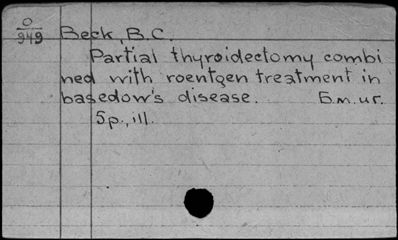 O
949
Beck, B.C.
Partial thyroidectomy combi
ned with roentgen treatment in
basedow's disease. Б.m.u r.
5p., ill.